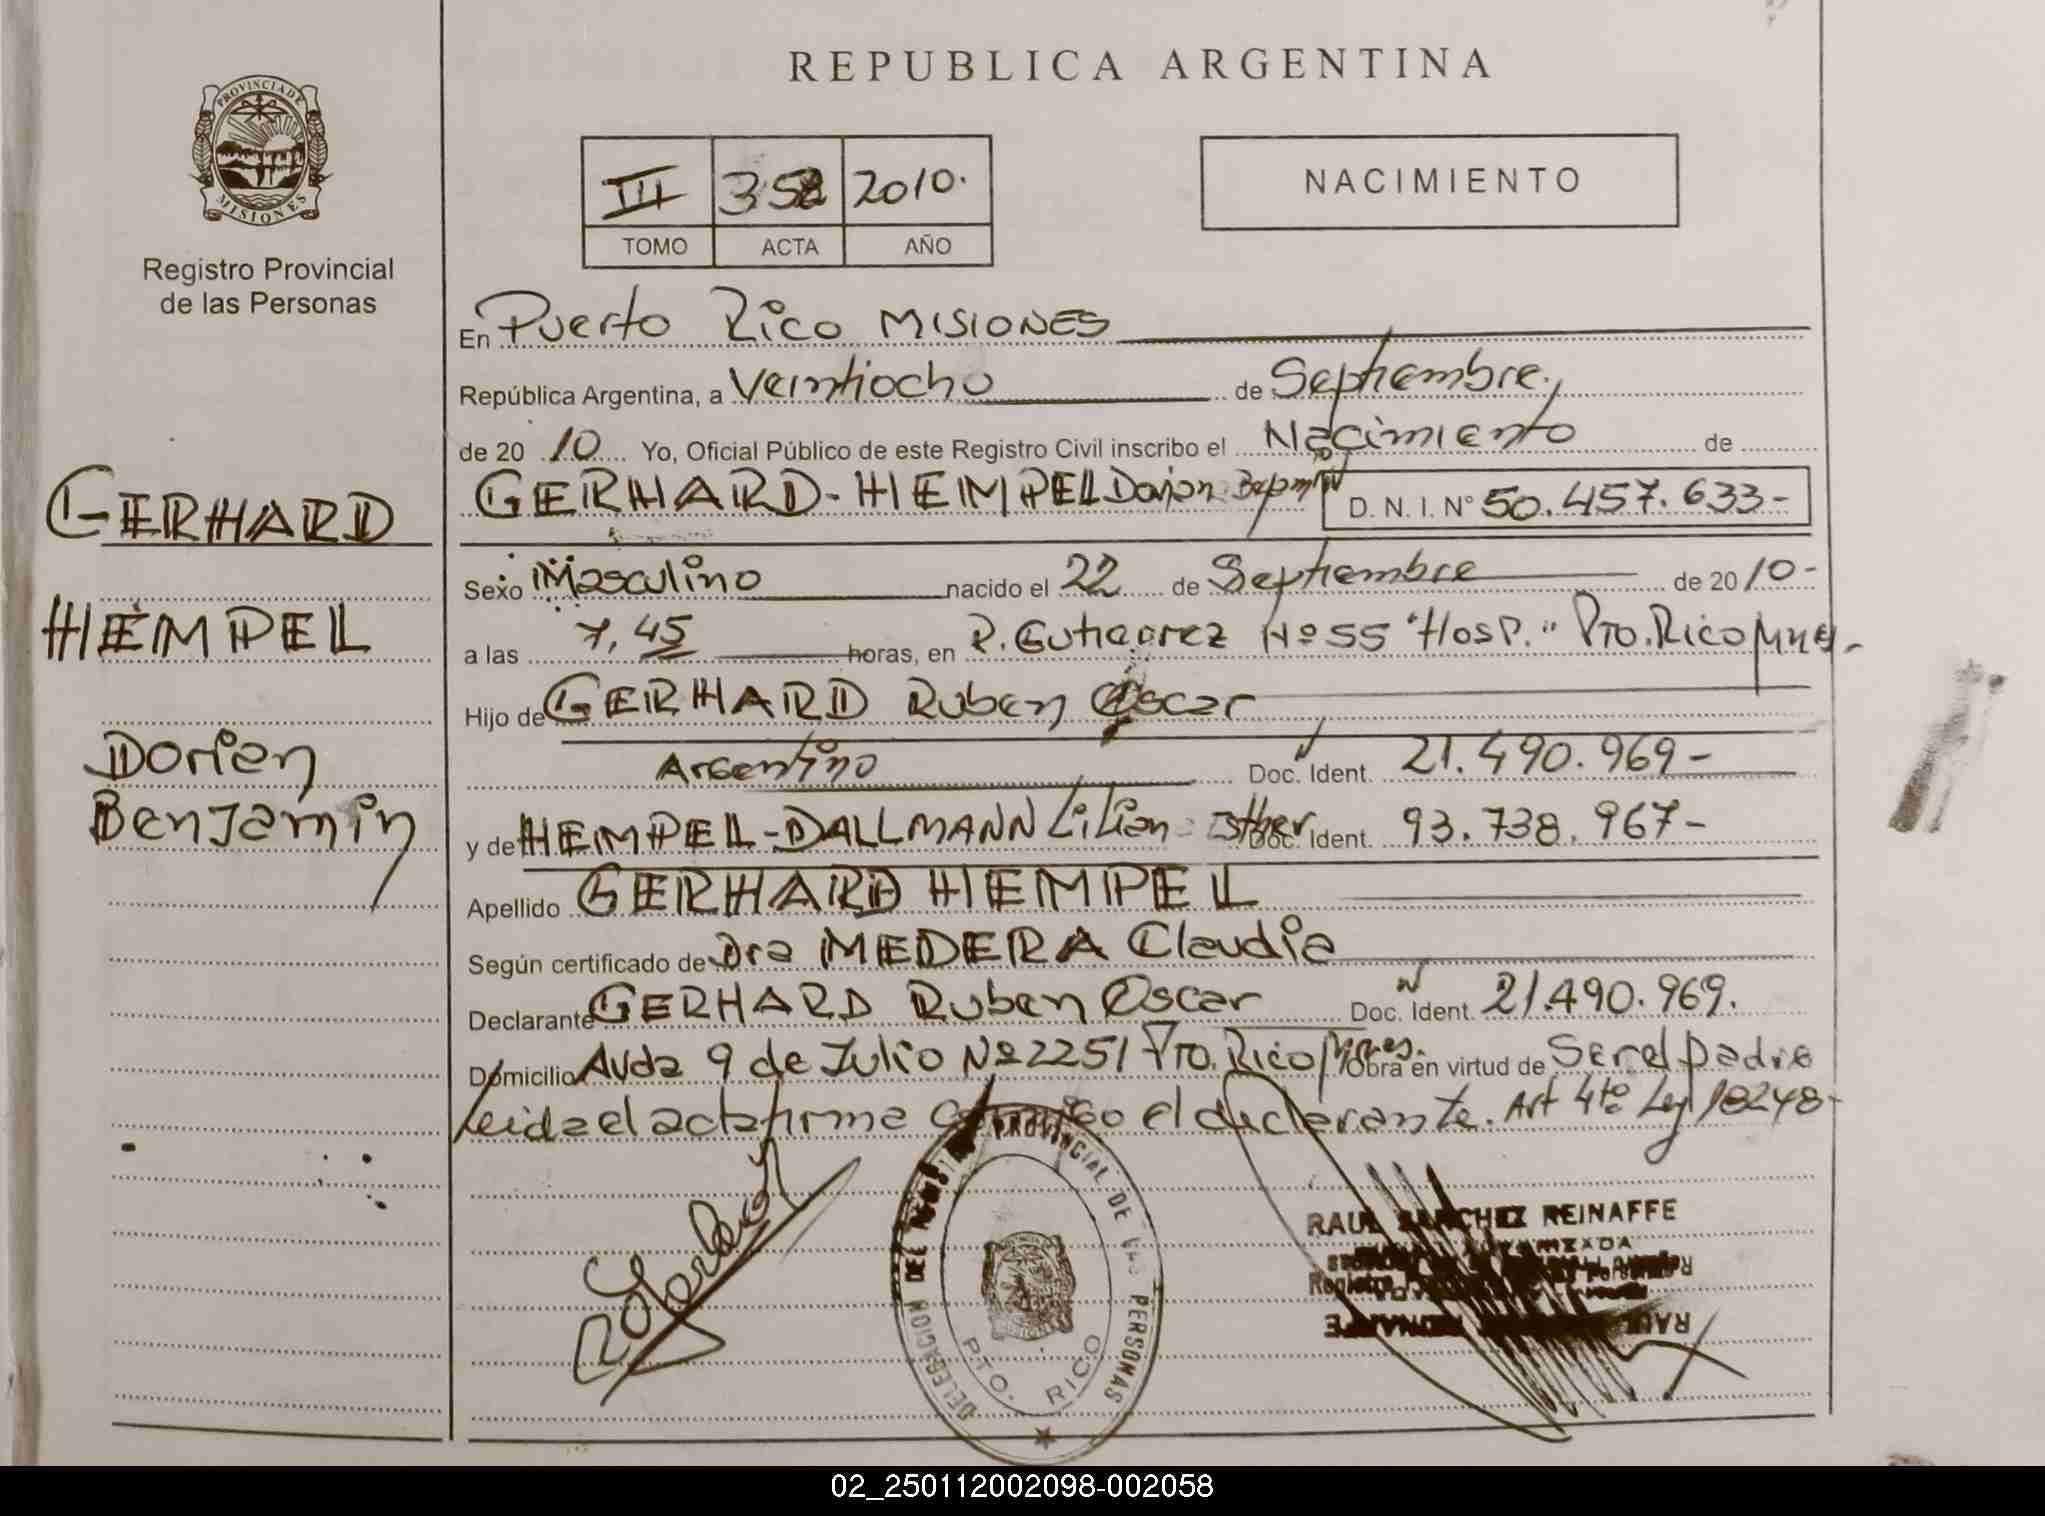 REPUBLICA ARGENTINA
PROVINCIA DE
MISIONES
Registro Provincial
de las Personas
III 358 2010.
TOMO ACTA AÑO
NACIMIENTO
GERHARD
HEMPEL
Dorian
Benjamin
En Puerto Rico MISIONES
República Argentina, a Veintiocho de Septiembre,
de 20 10 Yo, Oficial Público de este Registro Civil inscribo el Nacimiento de
GERHARD-HEMPEL Dorian Benjamin D. N. I. Nº 50.457.633-
Sexo Masculino nacido el 22 de Septiembre de 20 10-
a las 7,45 horas, en R. Gutierrez Nº 55 "Hosp." Pto. Rico Mnes.-
Hijo de GERHARD Ruben Oscar
Argentino Doc. Ident. 21.490.969-
y de HEMPEL-DALLMANN Lilian Esther Doc. Ident. 93.738.967-
Apellido GERHARD HEMPEL
Según certificado de Dra MEDERA Claudia
Declarante GERHARD Ruben Oscar Doc. Ident. 21.490.969.
Domicilio Avda 9 de Julio Nº 2251 Pto. Rico Mnes. Obra en virtud de Ser el padre
leida el acta firma conmigo el declarante. Art 4to Ley 18248-
DELEGACION DEL REGISTRO PROVINCIAL DE LAS PERSONAS
PTO. RICO
RAUL SANCHEZ REINAFFE
02_250112002098-002058